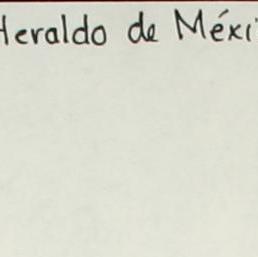 Heraldo de Méxi